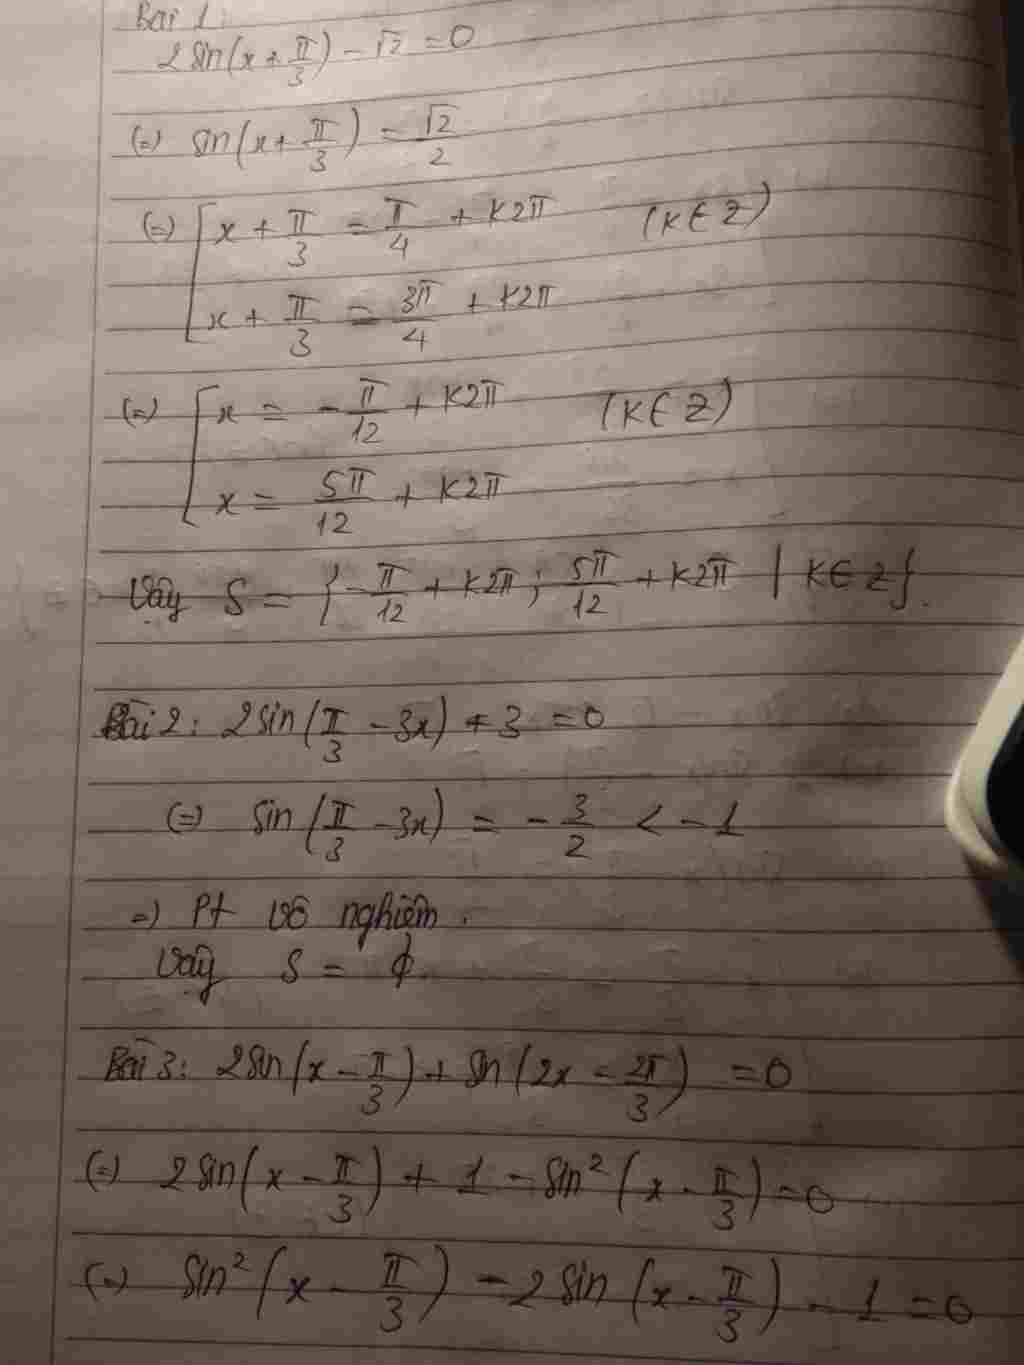 Bài 1:
2sin(x + π/3) - √2 = 0
(=) sin(x + π/3) = √2/2
(=) [ x + π/3 = π/4 + k2π (k ∈ Z)
x + π/3 = 3π/4 + k2π
(=) [ x = -π/12 + k2π (k ∈ Z)
x = 5π/12 + k2π
Vậy S = { -π/12 + k2π ; 5π/12 + k2π | k ∈ Z }.
Bài 2: 2sin(π/3 - 3x) + 3 = 0
(=) sin(π/3 - 3x) = -3/2 < -1
=) Pt vô nghiệm.
Vậy S = ϕ.
Bài 3: 2sin(x - π/3) + sin(2x - 2π/3) = 0
(=) 2sin(x - π/3) + 1 - sin²(x - π/3) = 0
(=) sin²(x - π/3) - 2sin(x - π/3) - 1 = 0